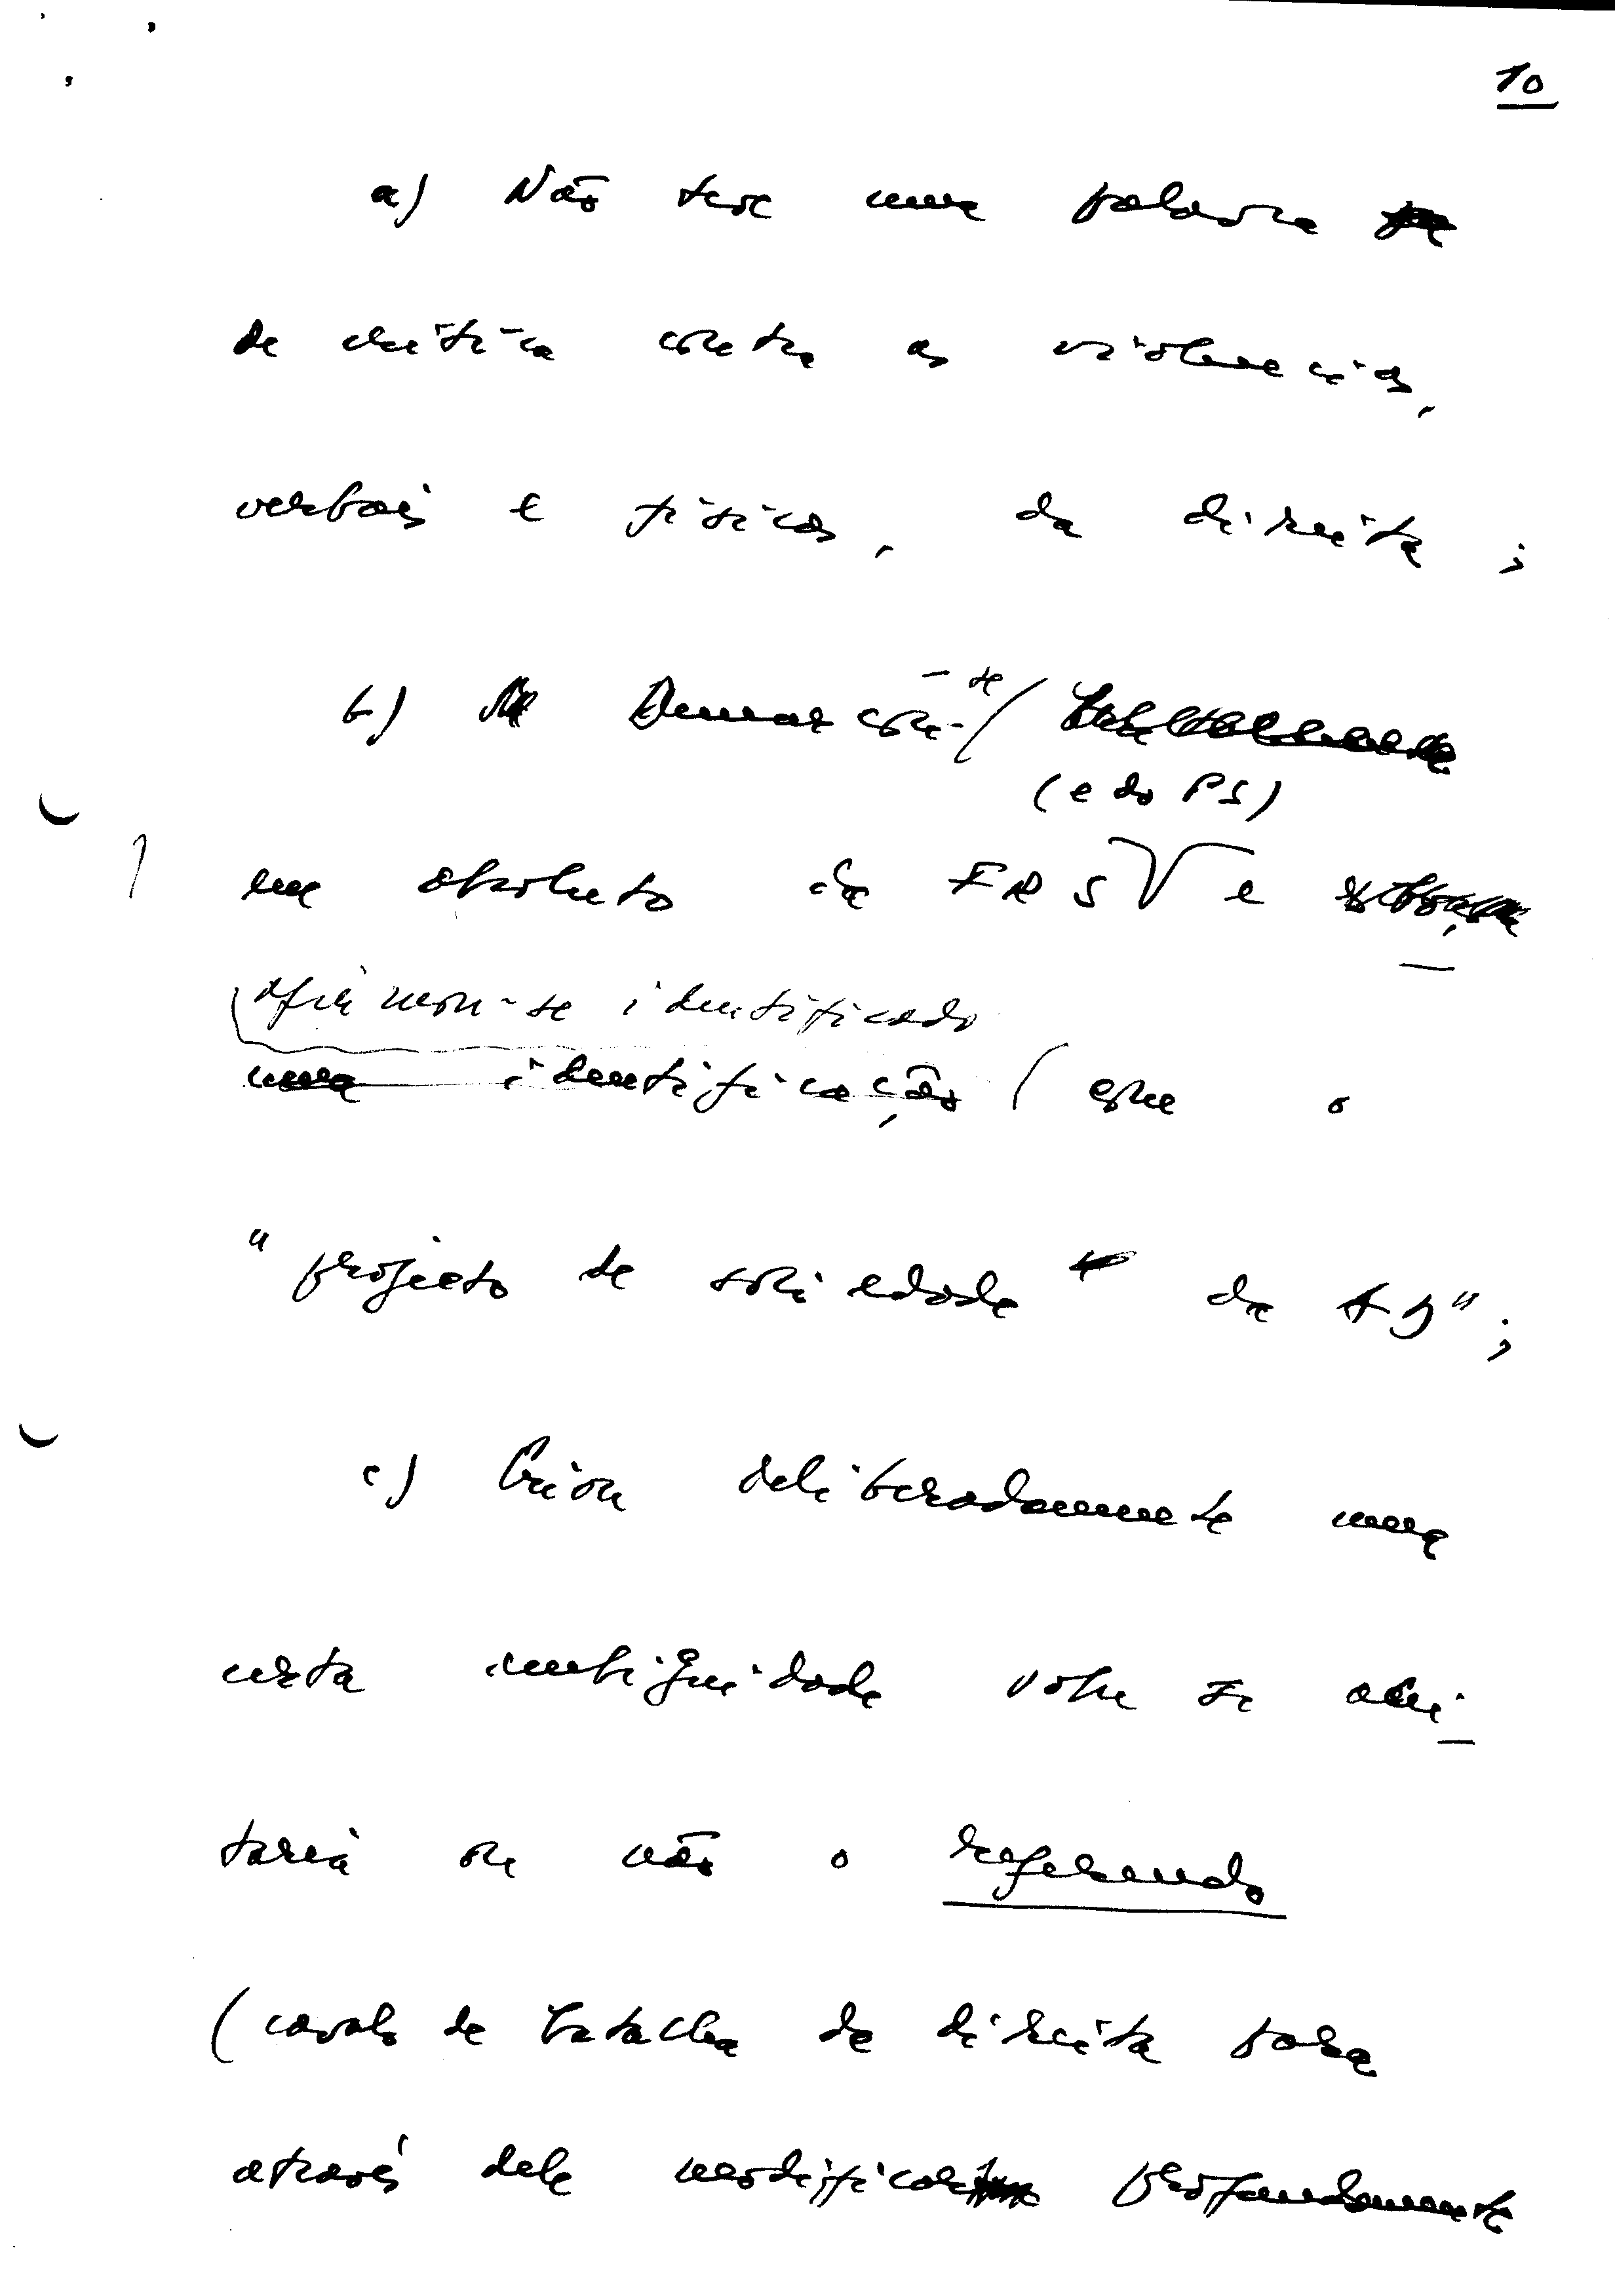 10
a) Não teve uma palavra
de crítica contra as violências,
verbais e físicas, da direita;
b) Demarcou-se
(e do PS)
em absoluto da FRS e
afirmou-se identificado
uma identificação com o
"projecto de sociedade da AD";
c) Criou deliberadamente uma
certa ambiguidade sobre se acei-
taria ou não o referendo
(cavalo de batalha da direita para
através dele modificar profundamente